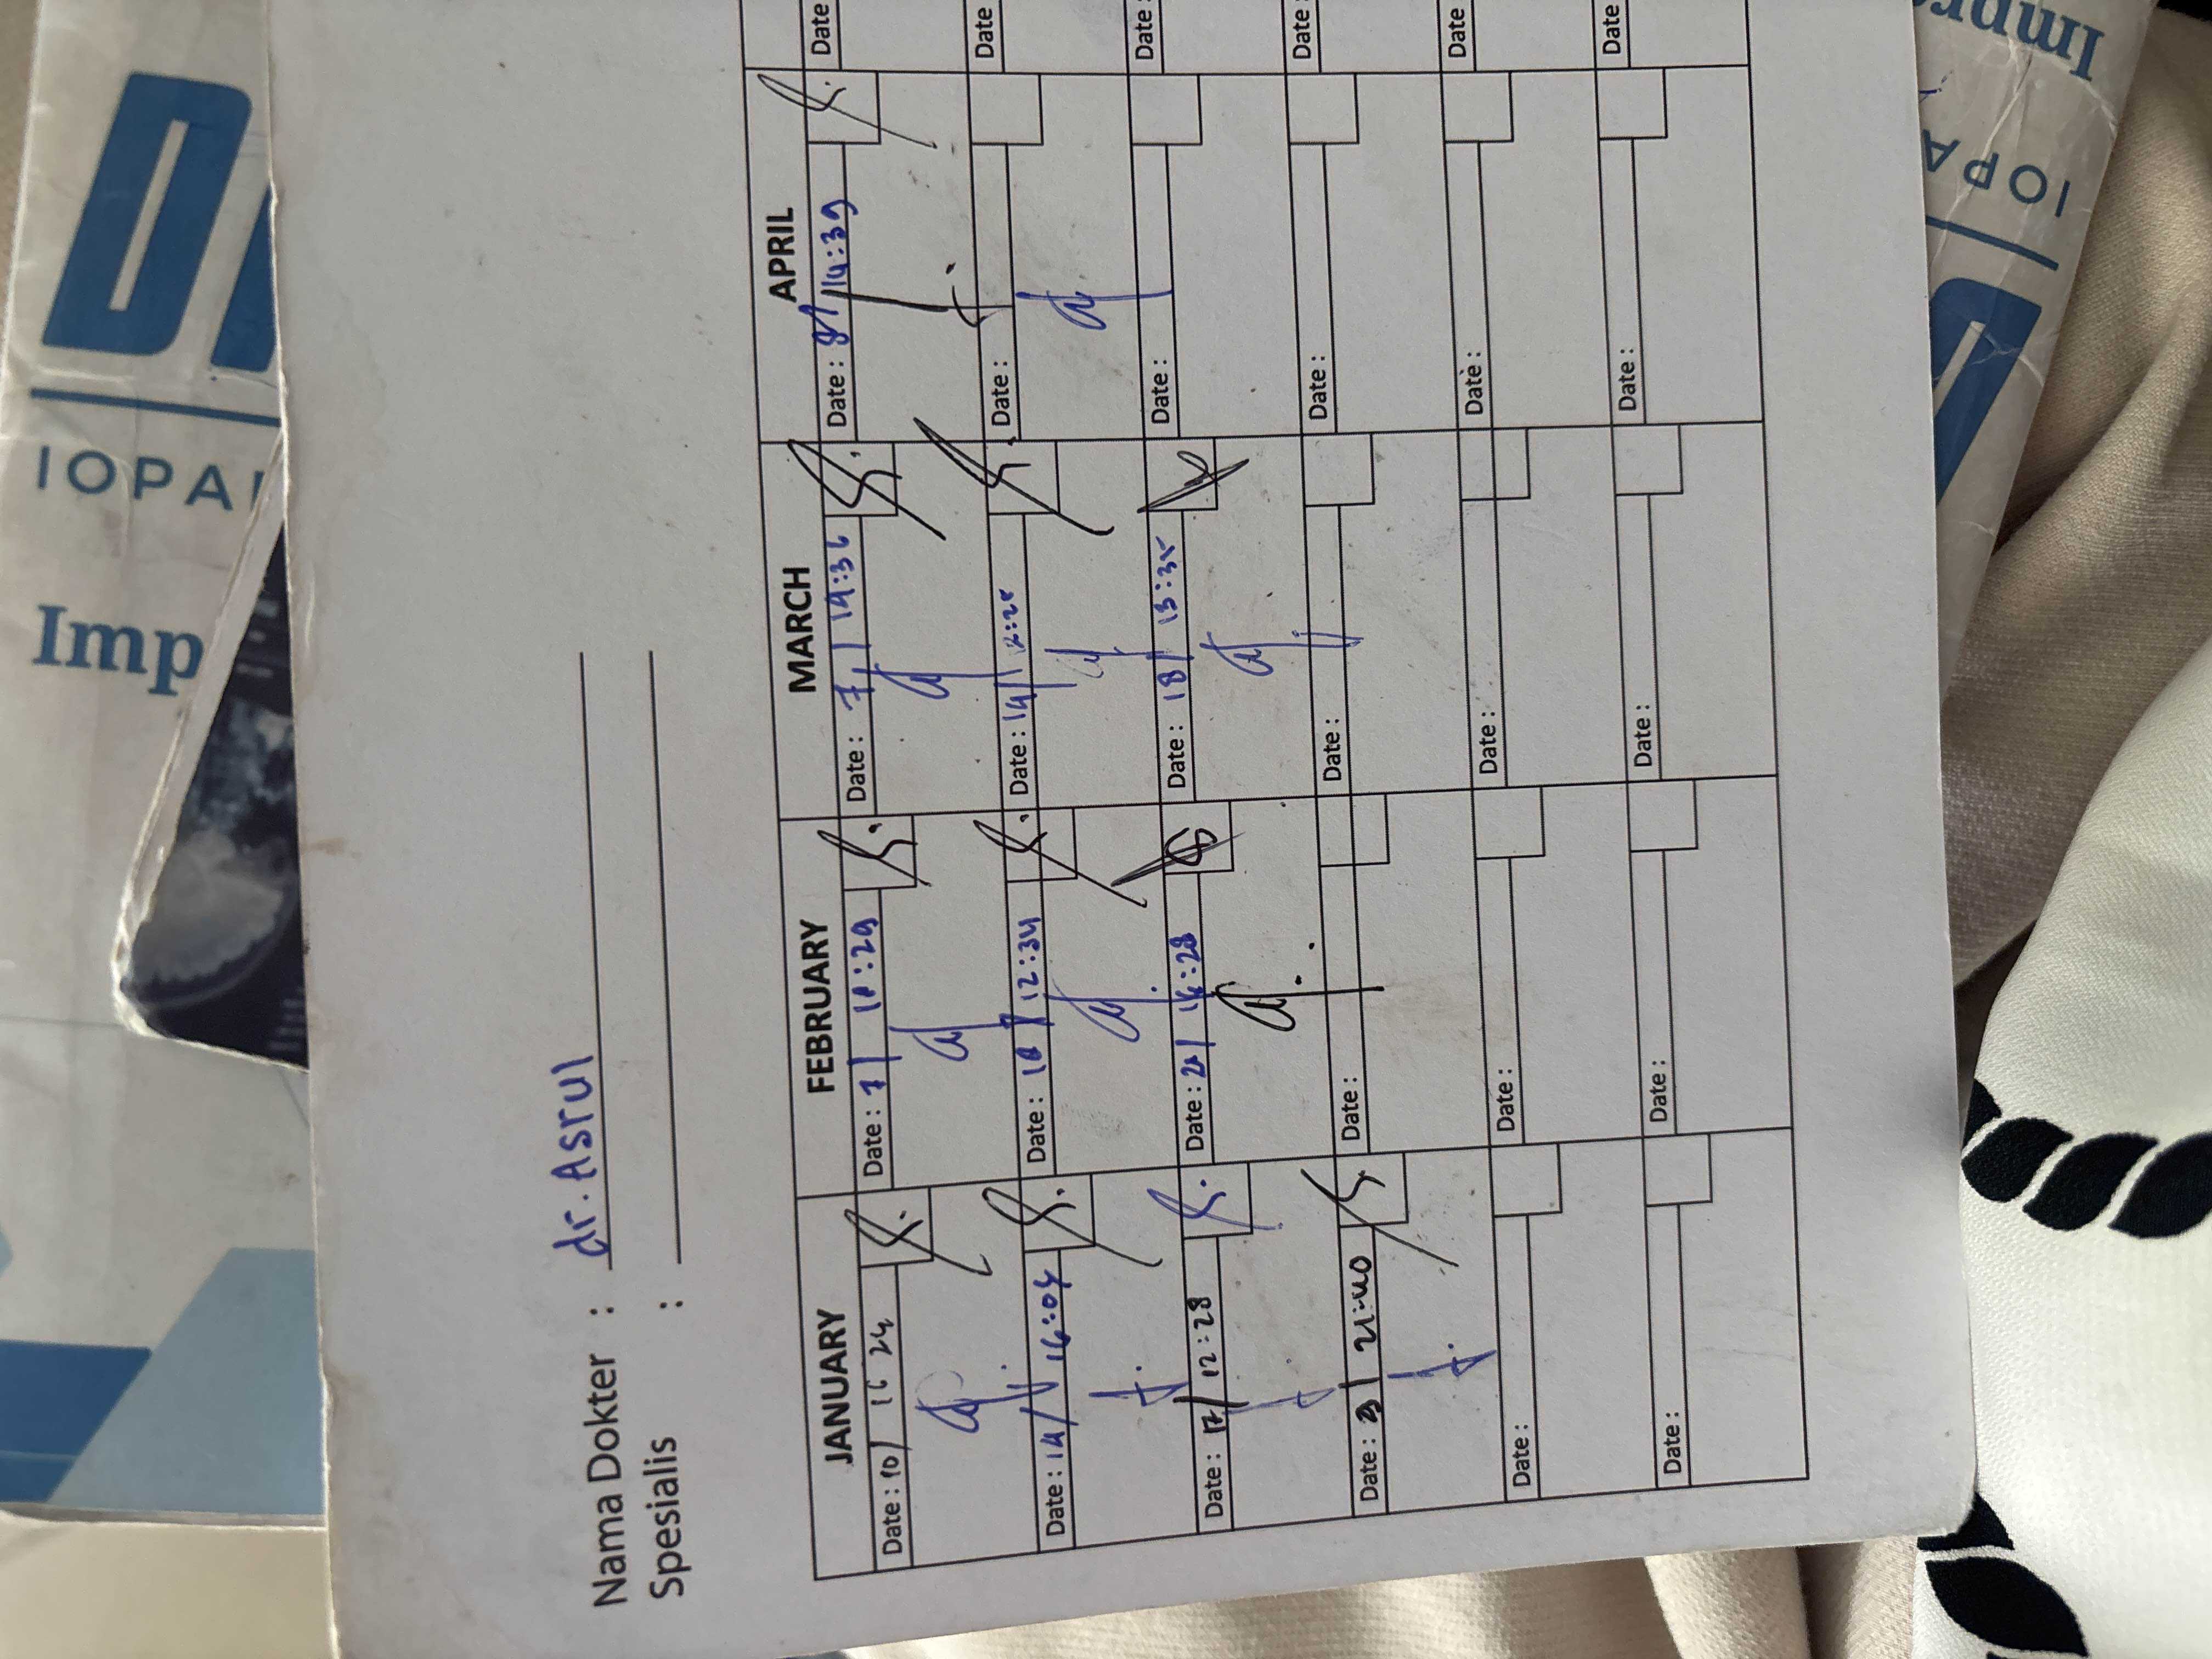 IOPA
Imp
Nama Dokter : dr. Asrul
Spesialis :
JANUARY FEBRUARY MARCH APRIL
Date : 10/ 16 24 Date : 7/ Date : 7/ 14:36 Date : 8/ 14:39 Date
Date : 14/ 16:04 Date : 12:34 Date : 14/ Date : Date
Date : 17/ 12:28 Date : 21/ 16:28 Date : 18/ 13:35 Date : Date :
Date : Date : Date : Date : Date :
Date : Date : Date : Date : Date
Date : Date : Date : Date : Date
IOPA